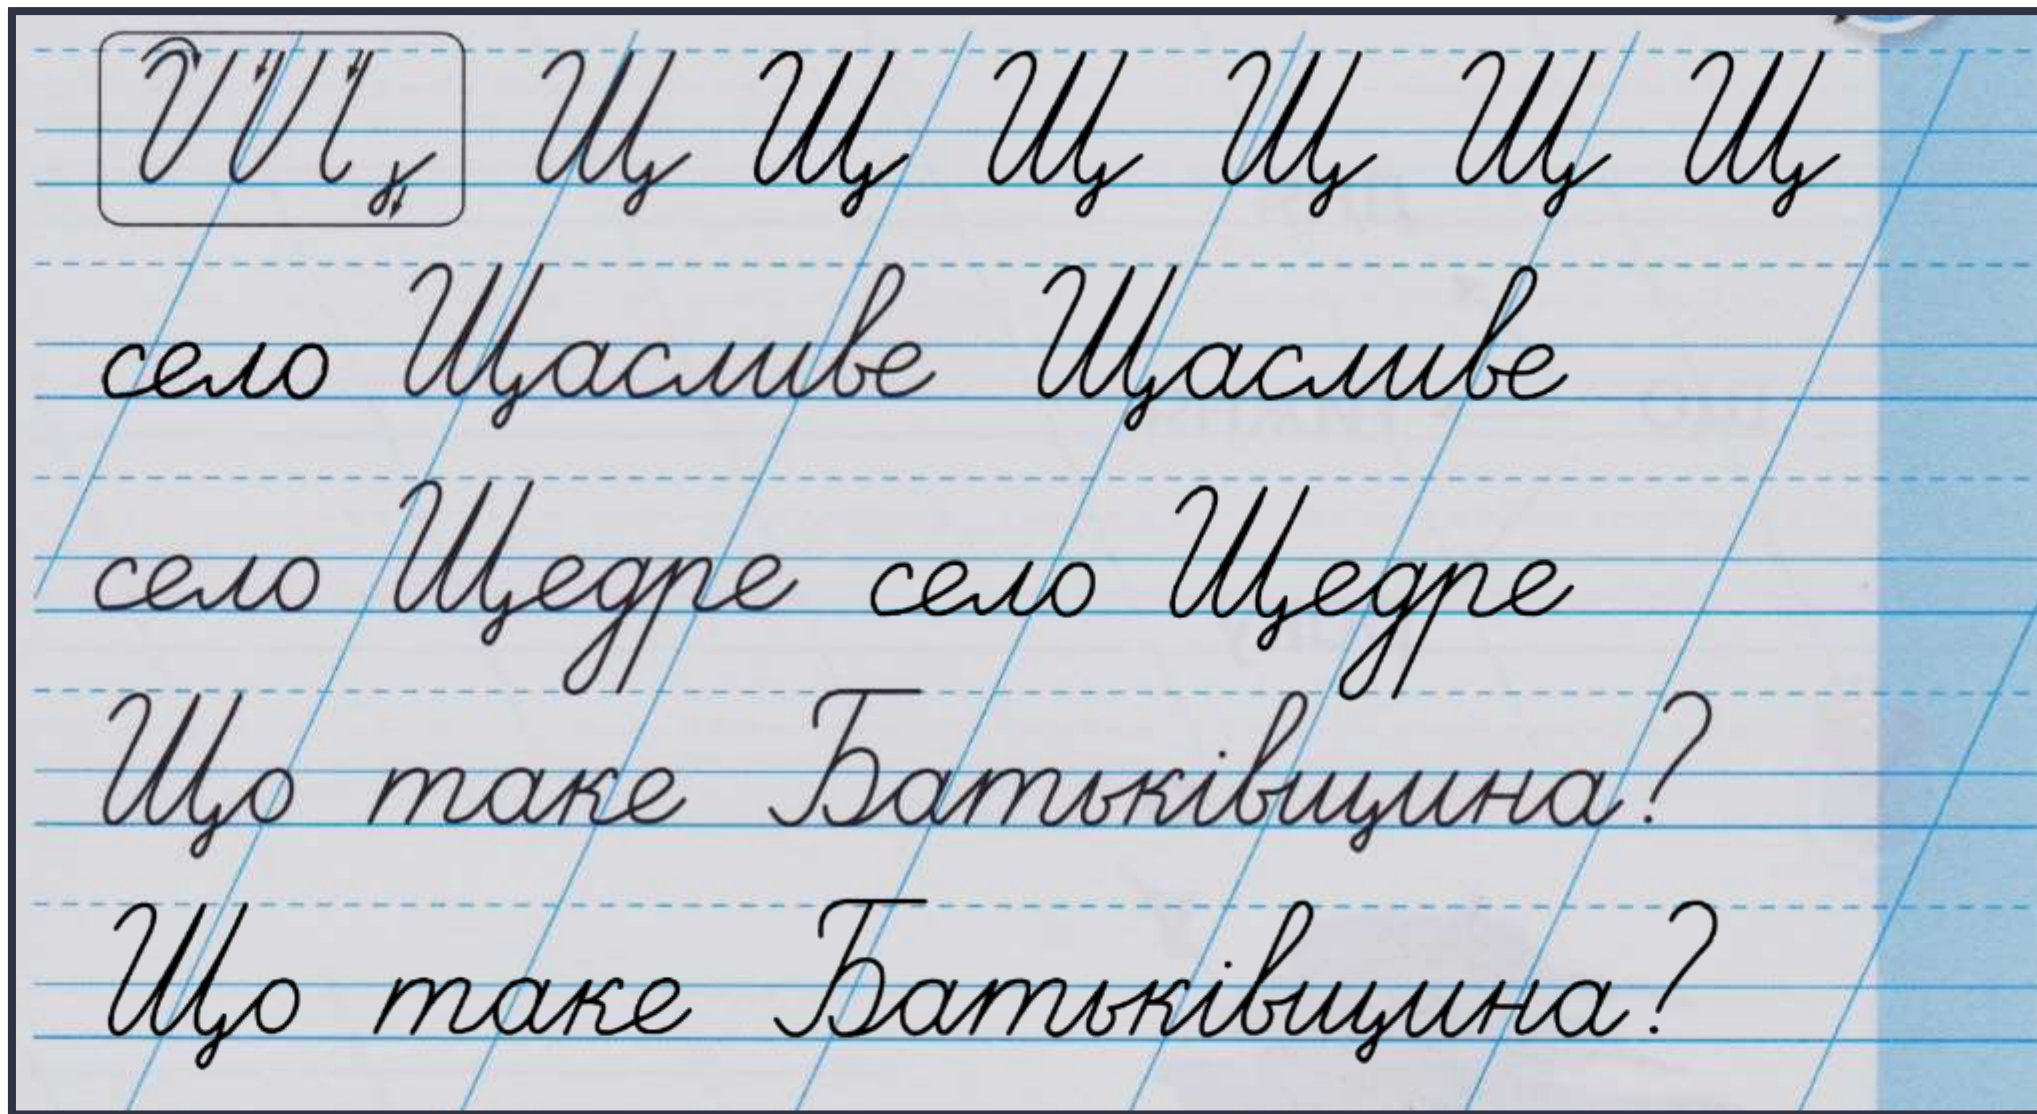 Щ Щ Щ Щ Щ Щ
село Щасливе Щасливе
село Щедре село Щедре
Що таке Батьківщина?
Що таке Батьківщина?